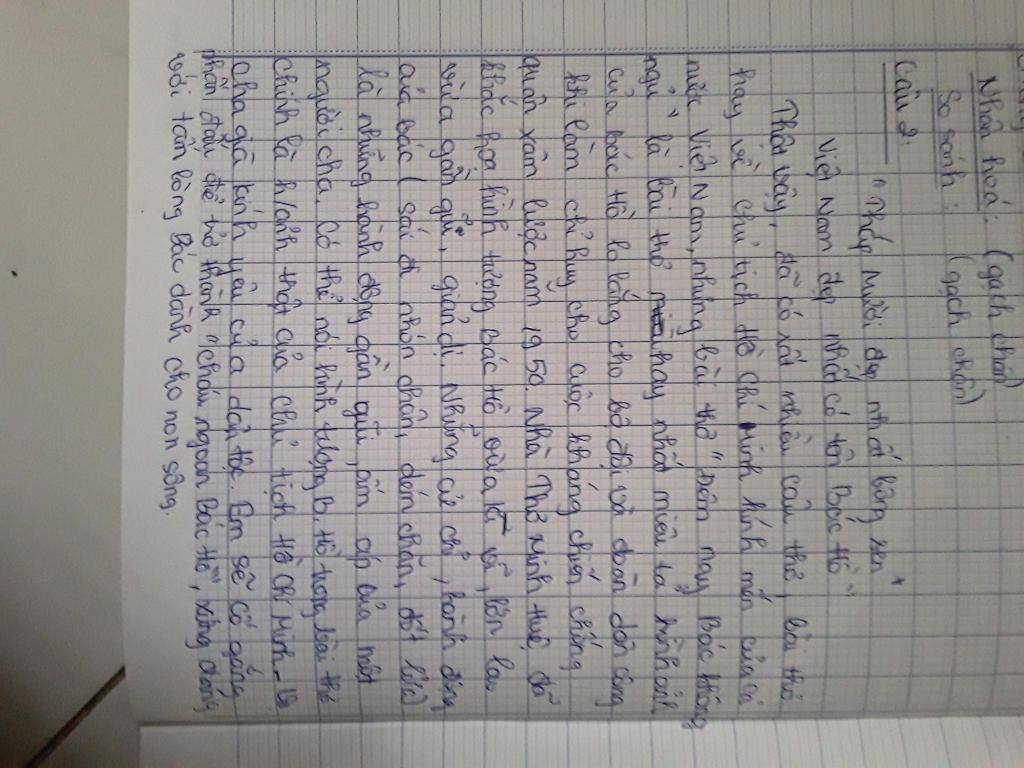 Nhân hoá: (gạch chân)
So sánh: (gạch chân)
Câu 2:
"Tháp Mười đẹp nhất bông sen
Việt Nam đẹp nhất có tên Bác Hồ"
Thật vậy, đã có rất nhiều câu thơ, bài thơ
hay về chủ tịch Hồ Chí Minh kính mến của cả
nước Việt Nam, nhưng bài thơ "Đêm nay Bác không
ngủ" là bài thơ hay nhất miêu tả hình ảnh
của bác Hồ lo lắng cho bộ đội và đoàn dân công
khi làm chỉ huy cho cuộc kháng chiến chống
quân xâm lược năm 1950. Nhà Thơ Minh Huệ đã
khắc họa hình tượng Bác Hồ vừa vĩ đại, lớn lao
vừa gần gũi, giản dị. Những cử chỉ, hành động
của bác (sải đi nhón chân, dém chăn, đốt lửa)
là những hành động gần gũi, ấm áp của một
người cha. Có thể nói hình tượng B. Hồ trong bài thơ
chính là h/ảnh thật của chủ tịch Hồ Chí Minh - là
cha già kính yêu của dân tộc. Em sẽ cố gắng
phấn đấu để trở thành "cháu ngoan Bác Hồ", xứng đáng
với tấm lòng Bác dành cho non sông.